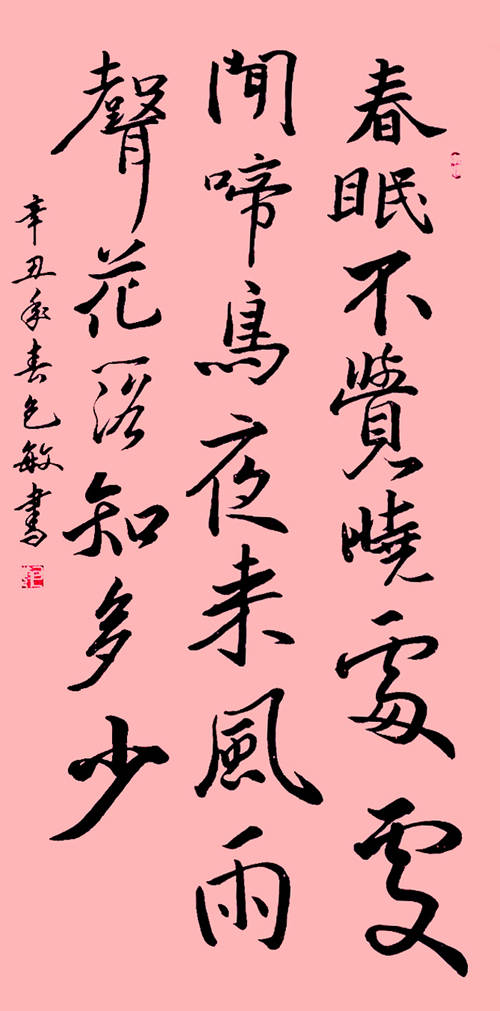 春眠不覺曉處處
聞啼鳥夜来風雨
聲花落知多少
辛丑年春包敏書